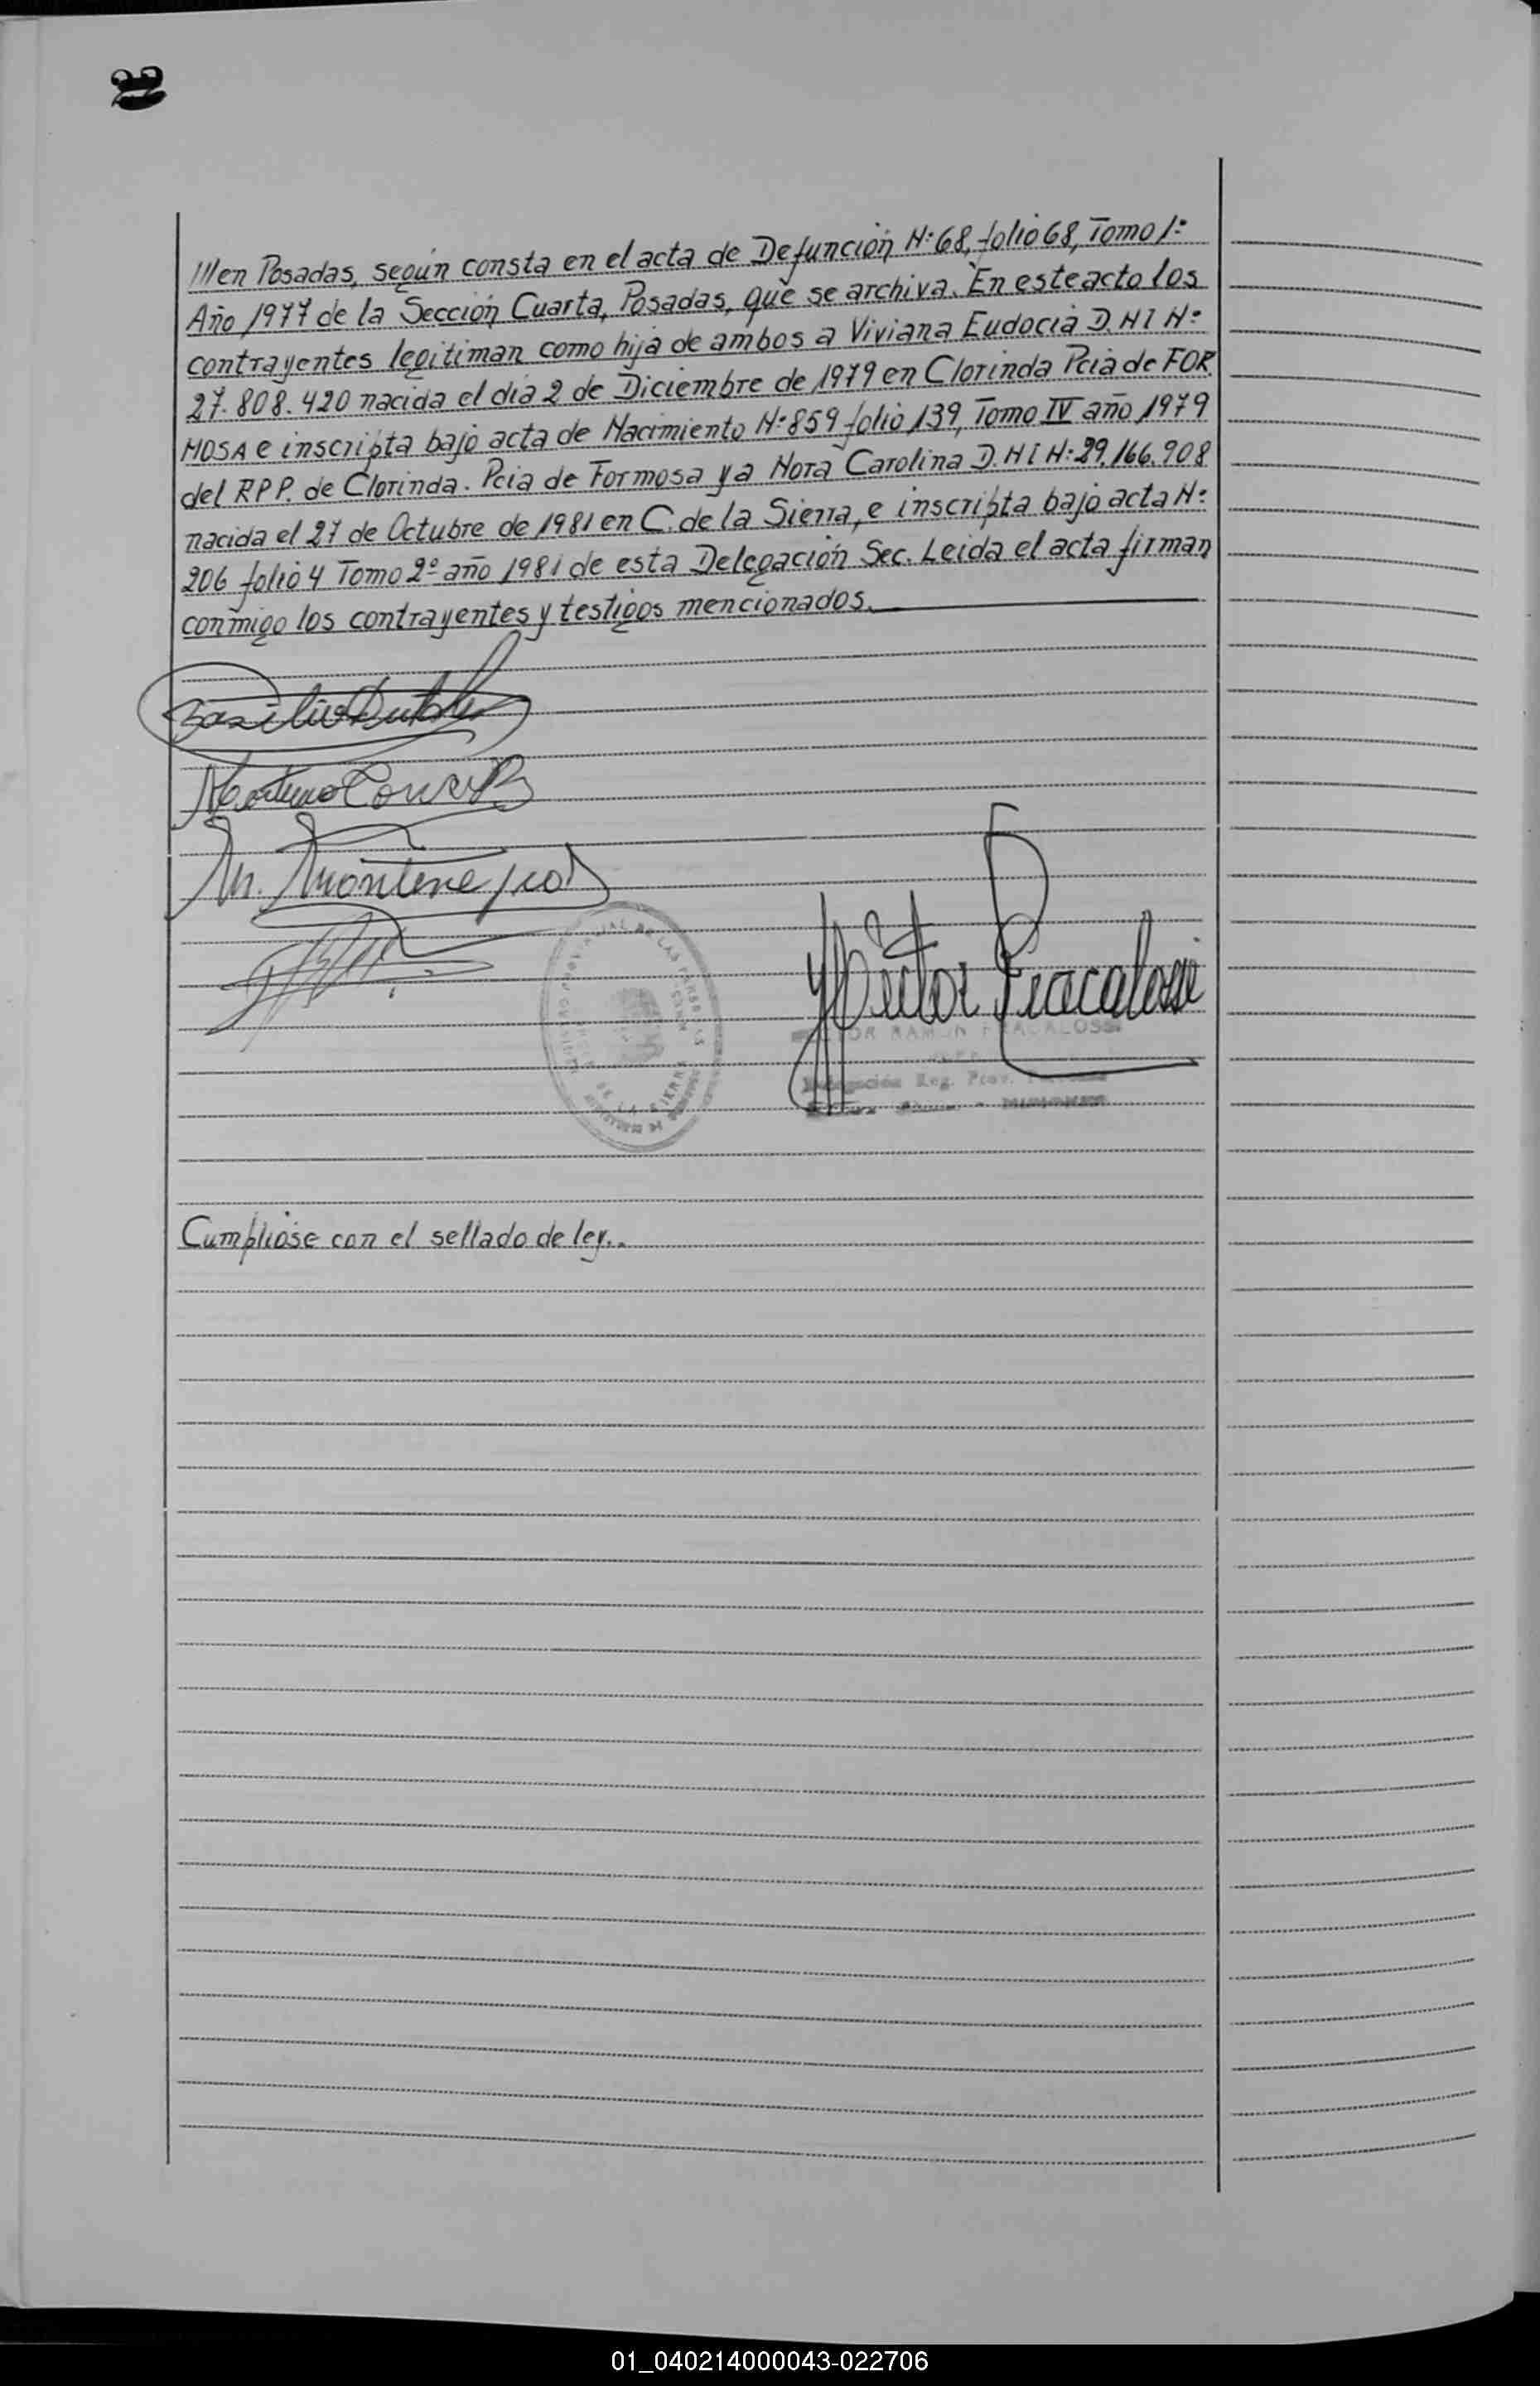 ////en Posadas, según consta en el acta de Defunción N:68, folio 68, Tomo 1º
Año 1977 de la Sección Cuarta, Posadas, que se archiva. En este acto los
contrayentes legitiman como hija de ambos a Viviana Eudocia D.N I N:
27.808.420 nacida el día 2 de Diciembre de 1979 en Clorinda Pcia de FOR
MOSA e inscripta bajo acta de Nacimiento N:859 folio 139, Tomo IV año 1979
del RPP. de Clorinda. Pcia de Formosa y a Nora Carolina D.N I N:29.166.908
nacida el 27 de Octubre de 1981 en C. de la Sierra, e inscripta bajo acta N:
206 folio 4 Tomo 2º año 1981 de esta Delegación Sec. Leida el acta firman
conmigo los contrayentes y testigos mencionados.
Basilio
M. Montenegro
Hector Fracalossi
TOR RAMON FRACALOSSI
Delegación Reg. Prov.
DE LA SIERRA
Cumpliose con el sellado de ley..
01_040214000043-022706